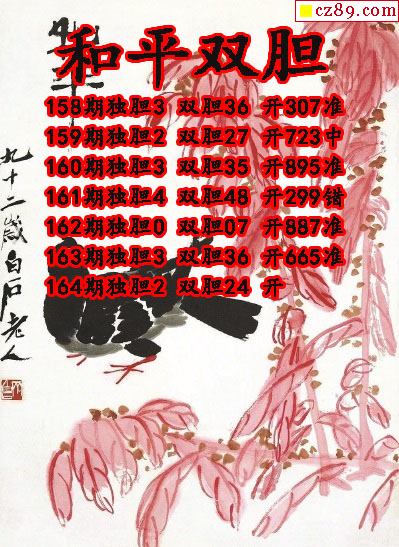 cz89.com
和平双胆
158期独胆3 双胆36 开307准
159期独胆2 双胆27 开723中
160期独胆3 双胆35 开895准
161期独胆4 双胆48 开299错
162期独胆0 双胆07 开887准
163期独胆3 双胆36 开665准
164期独胆2 双胆24 开
九十二岁白石老人